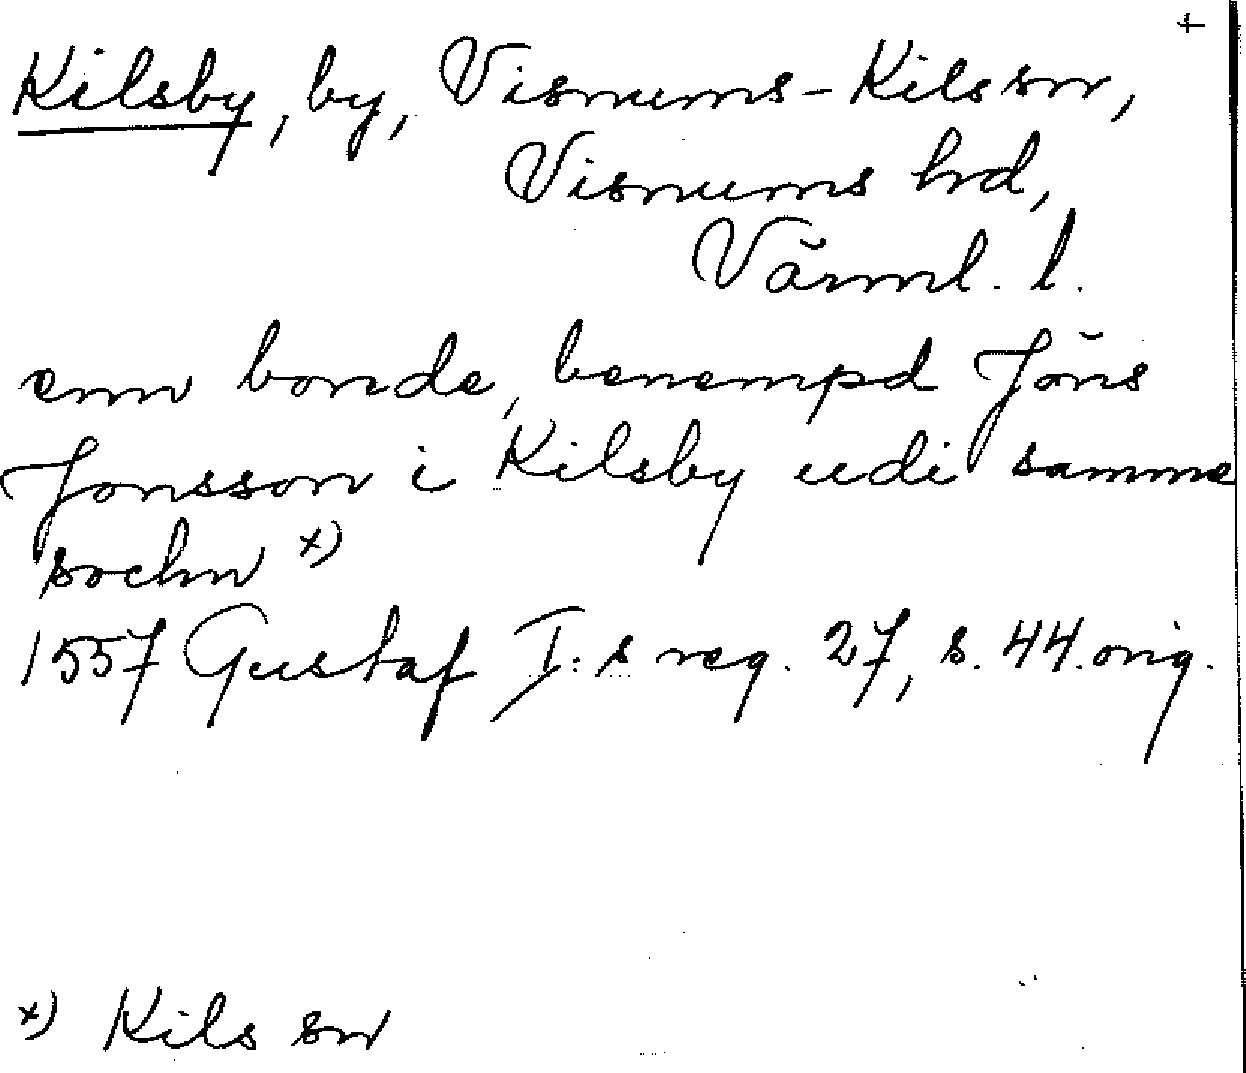 +
Kilsby, by, Visnums-Kils sn,
Visnums hd,
Värml. l.
enn bonde, benempd Jöns
Jonsson i Kilsby udi samme
sochn x)
1557 Gustaf I:s reg. 27, s. 44. orig.
x) Kils sn